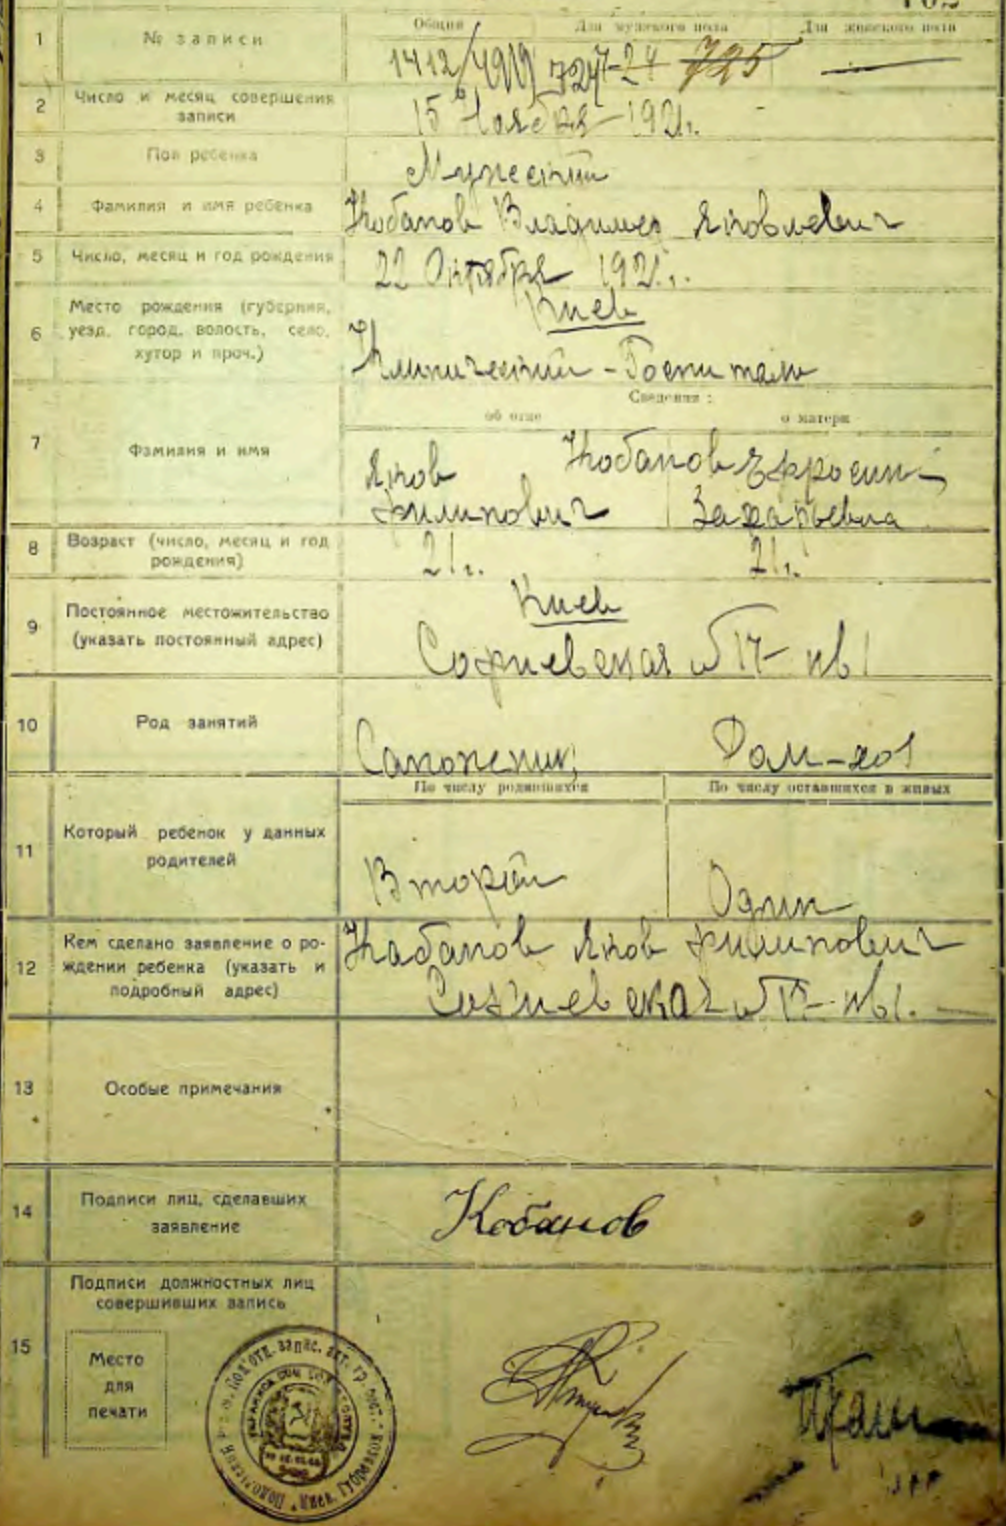 1 № записи
Общий Для мужского пола Для женского пола
1412/4919 725
2 Число и месяц совершения
записи
15 Ноября 1921г.
3 Пол ребенка
Мужеский
4 Фамилия и имя ребенка
Кобанов Владимер Яковлевич
5 Число, месяц и год рождения
22 Октября 1921г.
6 Место рождения (губерния,
уезд, город, волость, село,
хутор и проч.)
Киев
Клинический - Госпиталь
Сведения:
об отце о матери
7 Фамилия и имя
Кобанов
Яков
Филипович Захарьевна
8 Возраст (число, месяц и год
рождения)
21г. 21г.
9 Постоянное местожительство
(указать постоянный адрес)
Киев
Софиевская № 17 кв 1
10 Род занятий
Сапожник Дом-хоз
11 Который ребенок у данных
родителей
По числу родившихся По числу оставшихся в живых
Второй Один
12 Кем сделано заявление о ро-
ждении ребенка (указать и
подробный адрес)
Кабанов Яков Филипович
Софиевская № 17 кв 1.
13 Особые примечания
14 Подписи лиц, сделавших
заявление
Кобанов
15 Подписи должностных лиц
совершивших запись
Место
для
печати